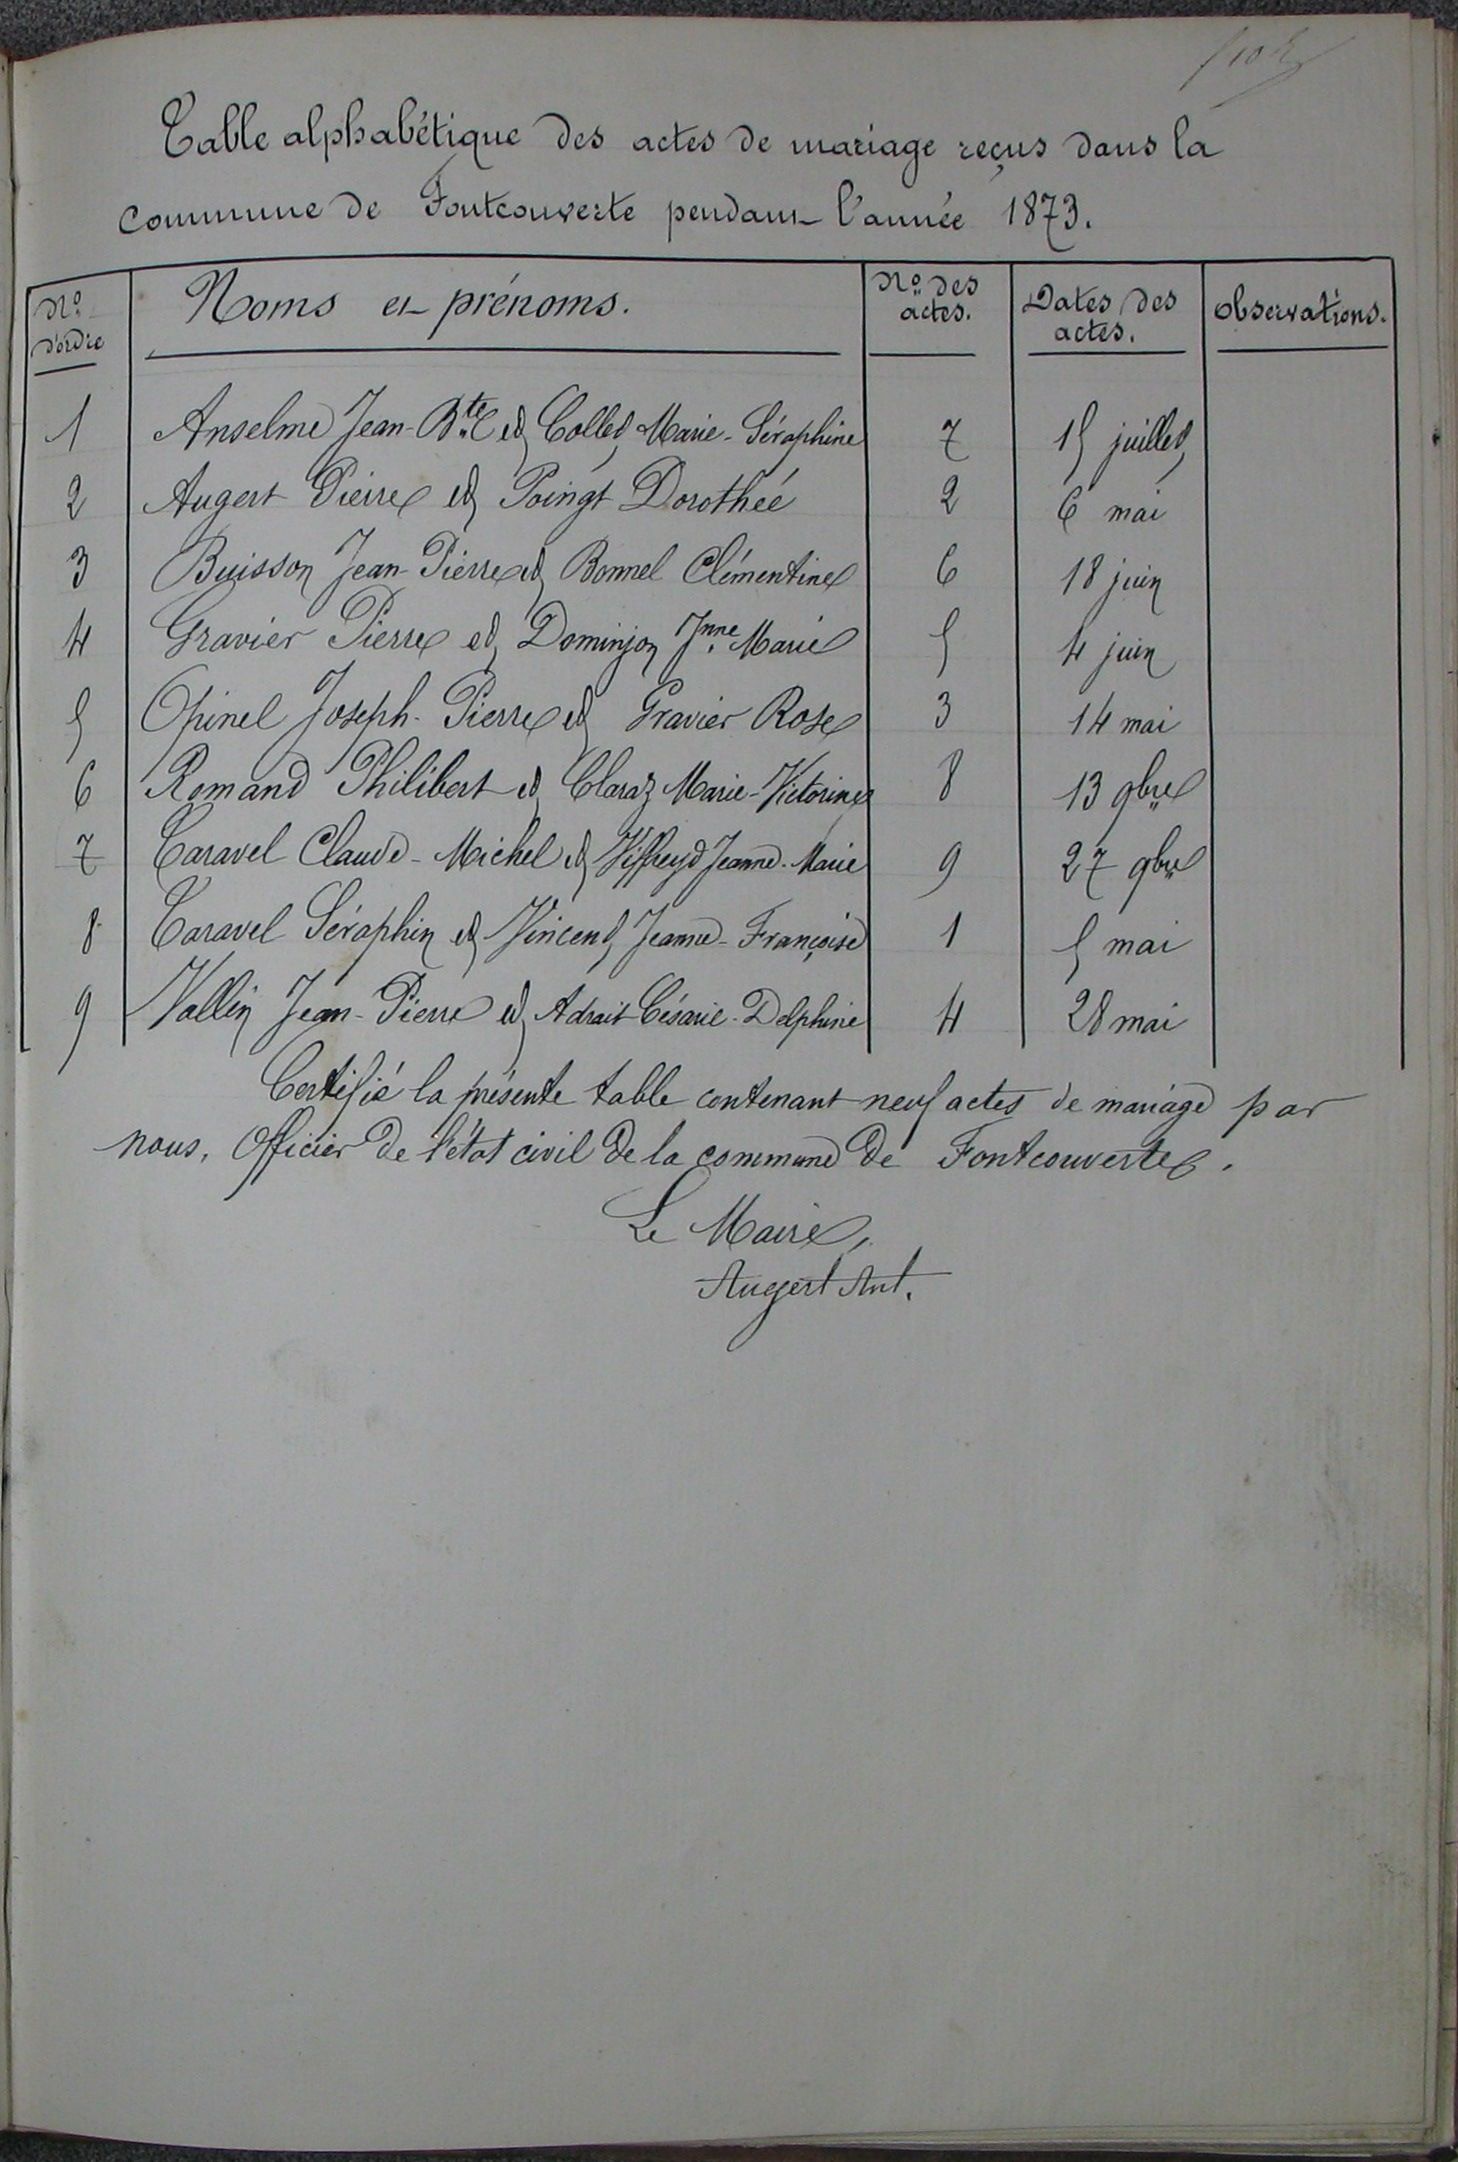 Table alphabétique des actes de mariage reçus dans la
commune de Fontcouverte pendant l'année 1873.
Nº d'ordre Noms et prénoms. Nº des actes. Dates des actes. Observations.
1 Anselme Jean-Bte et Collet Marie-Séraphine 7 15 juillet
2 Augert Pierre et Poingt Dorothée 2 6 mai
3 Buisson Jean-Pierre et Bonnel Clémentine 6 18 juin
4 Gravier Pierre et Dominjon Jnne Marie 5 4 juin
5 Opinel Joseph-Pierre et Gravier Rose 3 14 mai
6 Romand Philibert et Claraz Marie-Victorine 8 13 9bre
7 Taravel Claude-Michel et Viffreyd Jeanne-Marie 9 27 9bre
8 Taravel Séraphin et Vincent Jeanne-Françoise 1 5 mai
9 Vallin Jean-Pierre et Adrait Césarie-Delphine 4 28 mai
Certifié la présente table contenant neuf actes de mariage par
nous, Officier de l'état civil de la commune de Fontcouverte.
Le Maire,
Augert Ant.